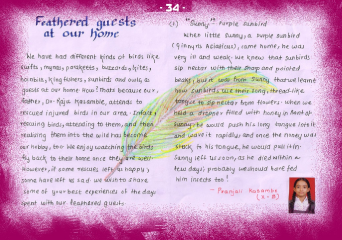 - 34 -
Feathered guests
at our home
We have had different kinds of birds like
swifts, mynas, parakeets, buzzards, kites,
hornbills, kingfishers, sunbirds and owls as
guests at our home. You? That's because our
father, Dr. Raju Kasambe, attends to
rescued injured birds in our area. Infact,
rescuing birds, attending to them, and then
releasing them into the wild has become
our hobby, too. We enjoy watching the birds
fly back to their home once they are well.
However, if some rescues left us happy,
some have left us sad. We wish to share
some of your best experiences of the days
spent with our feathered guest.
(1) "Sunny" Purple sunbird
When little Sunny, a purple sunbird
(Cinnyris Asiaticus), came home, he was
very ill and weak. We knew that sunbirds
sip nectar with their sharp and pointed
beaks; but it was from Sunny that we learnt
how sunbirds use their long, thread-like
tongue to sip nectar from flowers. When we
held a dropper filled with honey in front of
Sunny, he would push his long tongue into it
and wave it rapidly; and once the honey was
stuck to his tongue, he would pull it in.
Sunny left us soon, as he died within a
few days; probably we should have fed
him insects too!
- Pranjali Kasambe
(X-B)